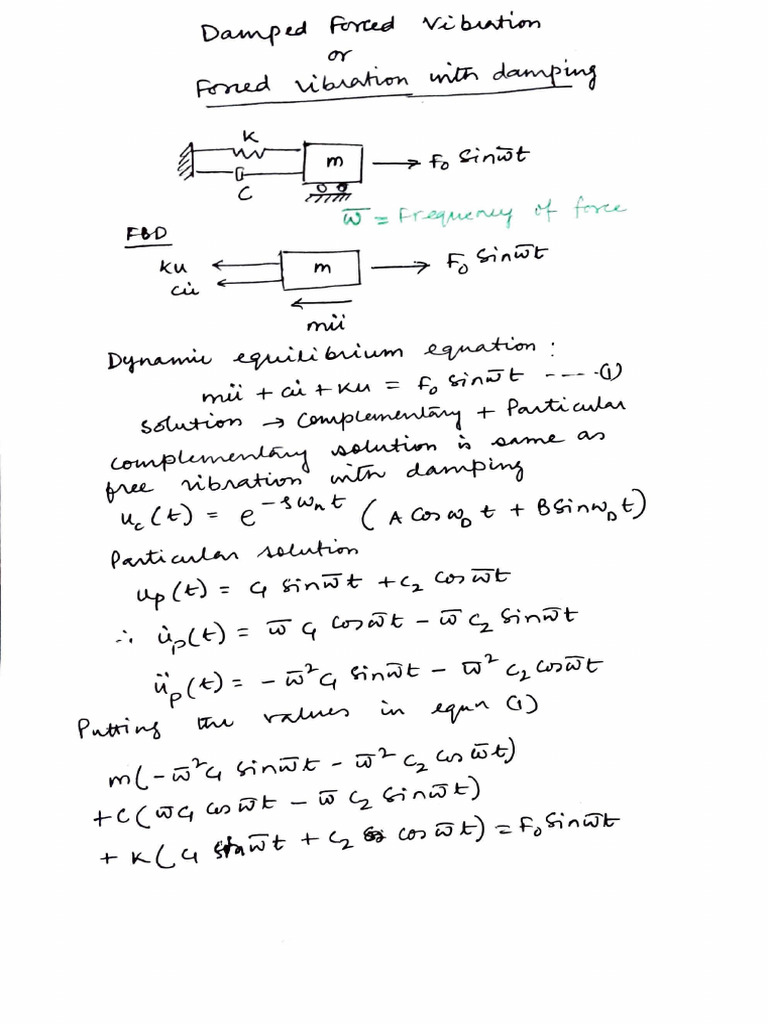 Damped Forced Vibration
or
Forced vibration with damping
K
m
F₀ Sinω̅t
C
ω̅ = Frequency of force
FBD
ku
cu̇
m
F₀ Sinω̅t
mü
Dynamic equilibrium equation :
mü + cu̇ + ku = F₀ sinω̅t ---- (1)
solution → Complementary + Particular
complementary solution is same as
free vibration with damping
u_c(t) = e^{-ξω_n t} (A Cosω_D t + B Sinω_D t)
Particular solution
u_p(t) = C₁ sinω̅t + C₂ cosω̅t
∴ u̇_p(t) = ω̅ C₁ cosω̅t − ω̅ C₂ Sinω̅t
ü_p(t) = − ω̅² C₁ sinω̅t − ω̅² C₂ cosω̅t
Putting the values in equn (1)
m(− ω̅² C₁ sinω̅t − ω̅² C₂ cosω̅t)
+ C (ω̅ C₁ cosω̅t − ω̅ C₂ sinω̅t)
+ K (C₁ sinω̅t + C₂ cosω̅t) = F₀ Sinω̅t